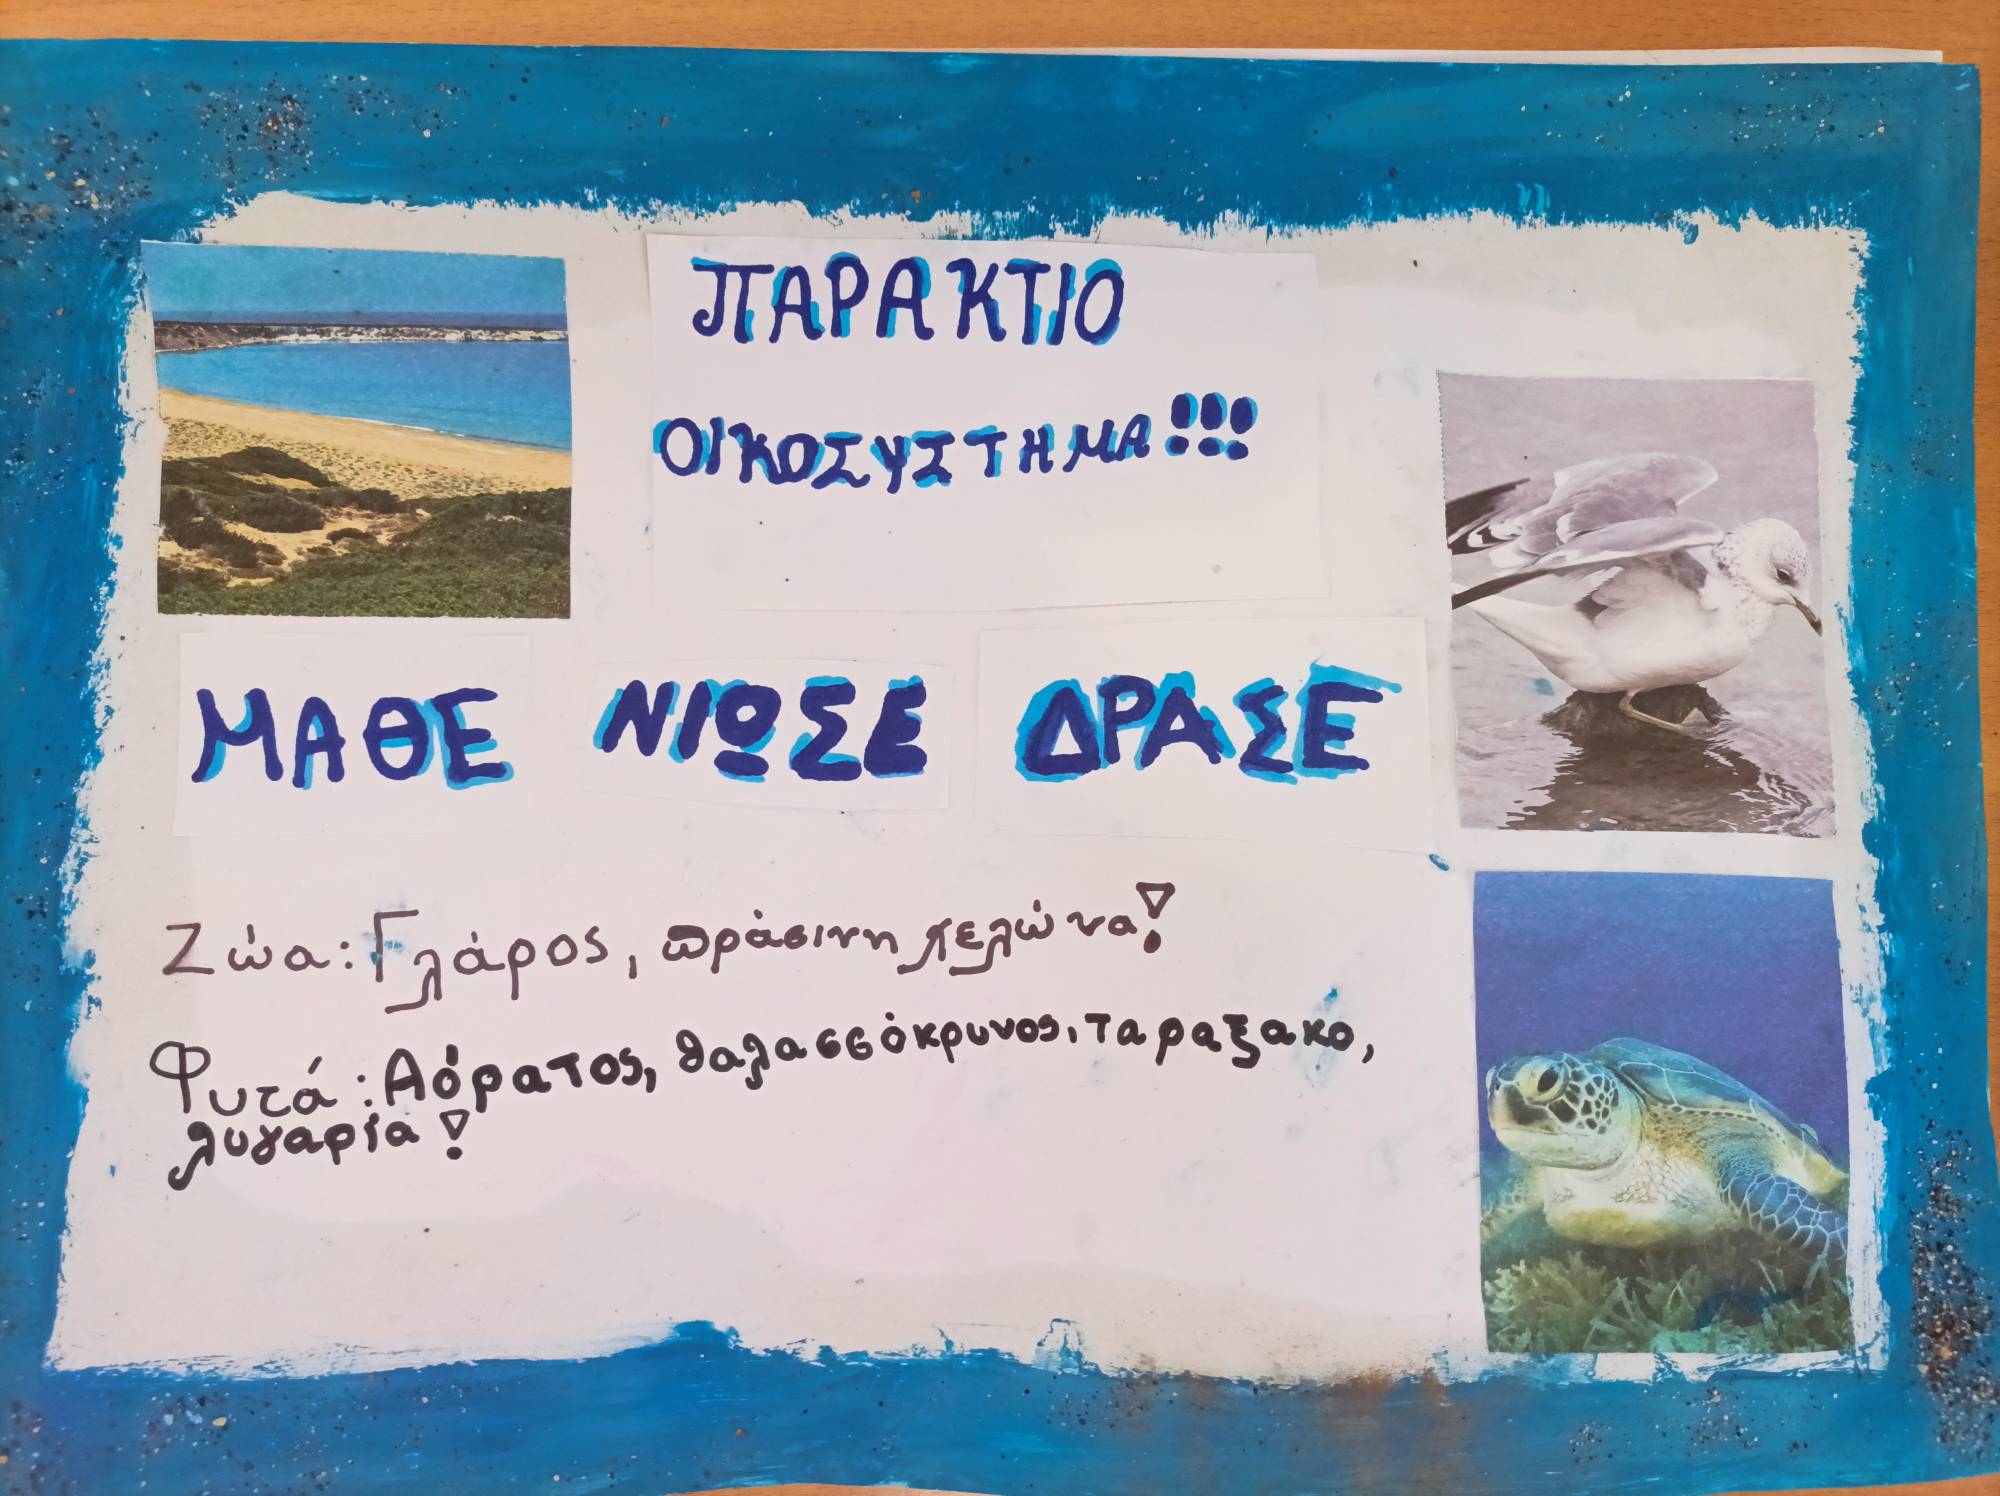 ΠΑΡΑΚΤΙΟ
ΟΙΚΟΣΥΣΤΗΜΑ!!!
ΜΑΘΕ ΝΙΩΣΕ ΔΡΑΣΕ
Ζώα: Γλάρος, πράσινη χελώνα!
Φυτά: Αόρατος, θαλασσόκρυνος, ταραξακο,
λυγαρία!